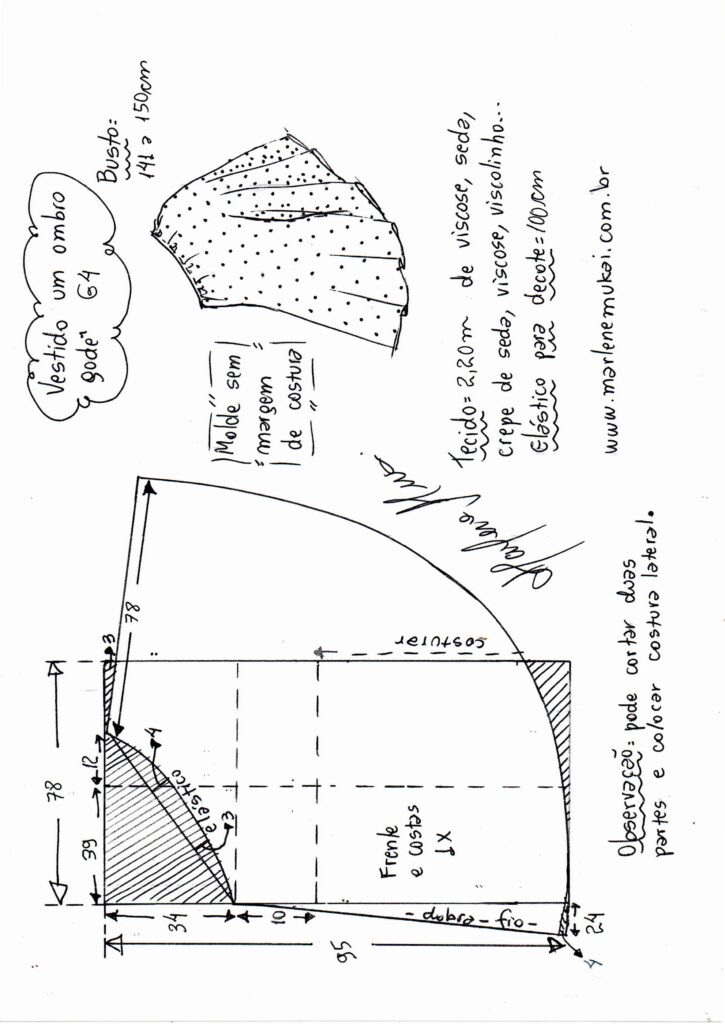 Vestido um ombro
godê" G4
Busto=
141 a 150cm
Molde sem
margem
de costura
Tecido=2,20m de viscose, seda,
crepe de seda, viscose, viscolinho...
Elástico para decote=100cm
www.marlenemukai.com.br
78
39
12
3
78
4
elástico
3
34
10
95
costurar
Frente
e costas
1X
- fio - dobra -
24
4
Observação= pode cortar duas
partes e colocar costura lateral.